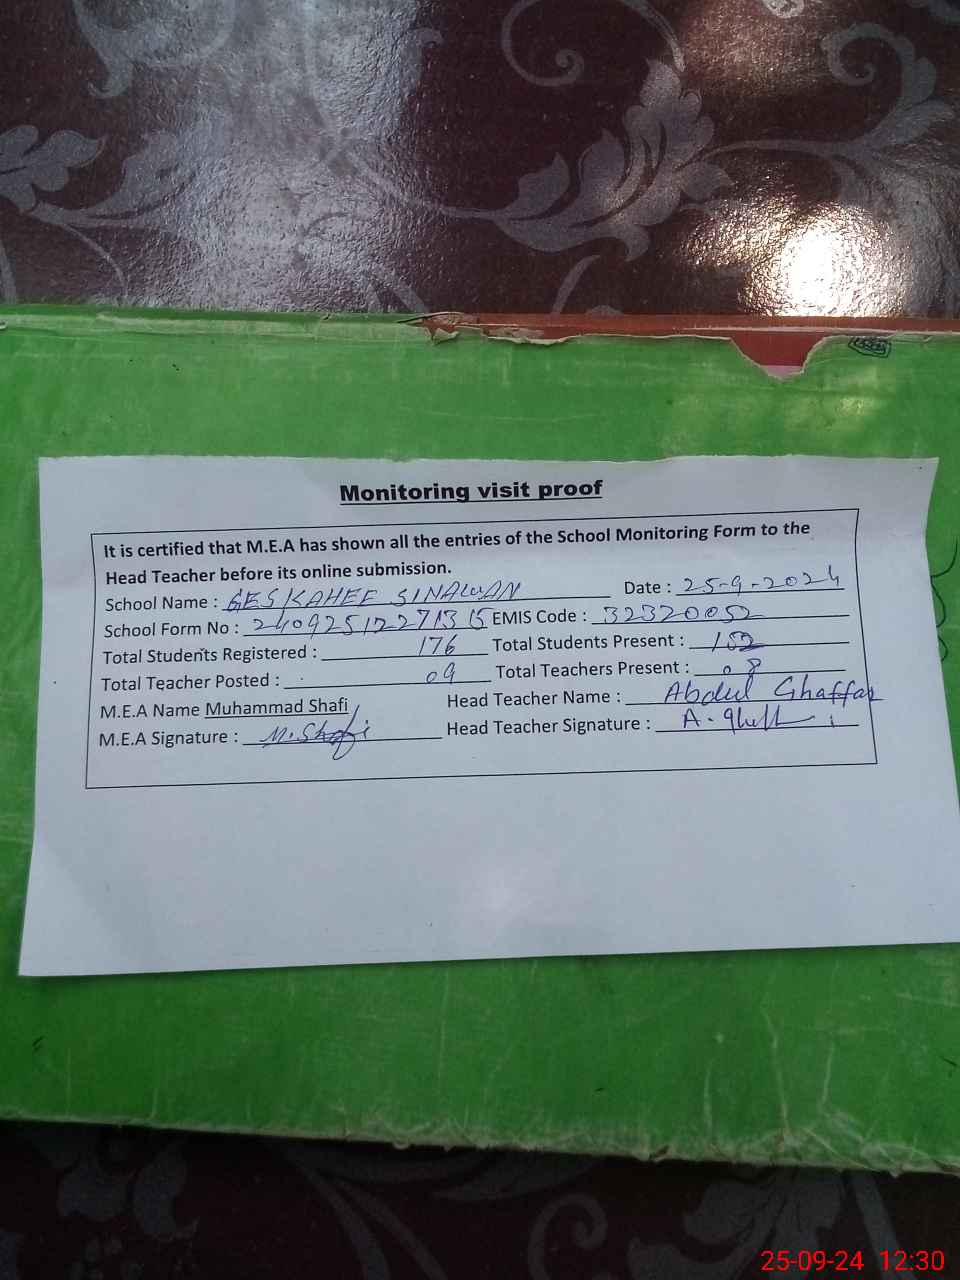 Monitoring visit proof
It is certified that M.E.A has shown all the entries of the School Monitoring Form to the
Head Teacher before its online submission.
School Name : GES KAHEE SINAWAN Date : 25-9-2024
School Form No : 240925122713 15 EMIS Code : 32320052
Total Students Registered : 176 Total Students Present : 152
Total Teacher Posted : 09 Total Teachers Present : 08
M.E.A Name Muhammad Shafi Head Teacher Name : Abdul Ghaffar
M.E.A Signature : M.Shafi Head Teacher Signature : A.
25-09-24 12:30